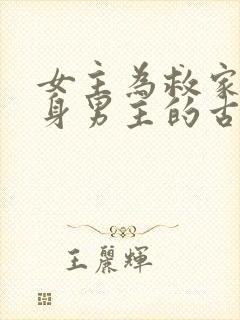 女主為救家
身男主的古
王麗輝